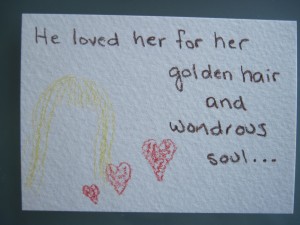 He loved her for her
golden hair
and
wondrous
soul...